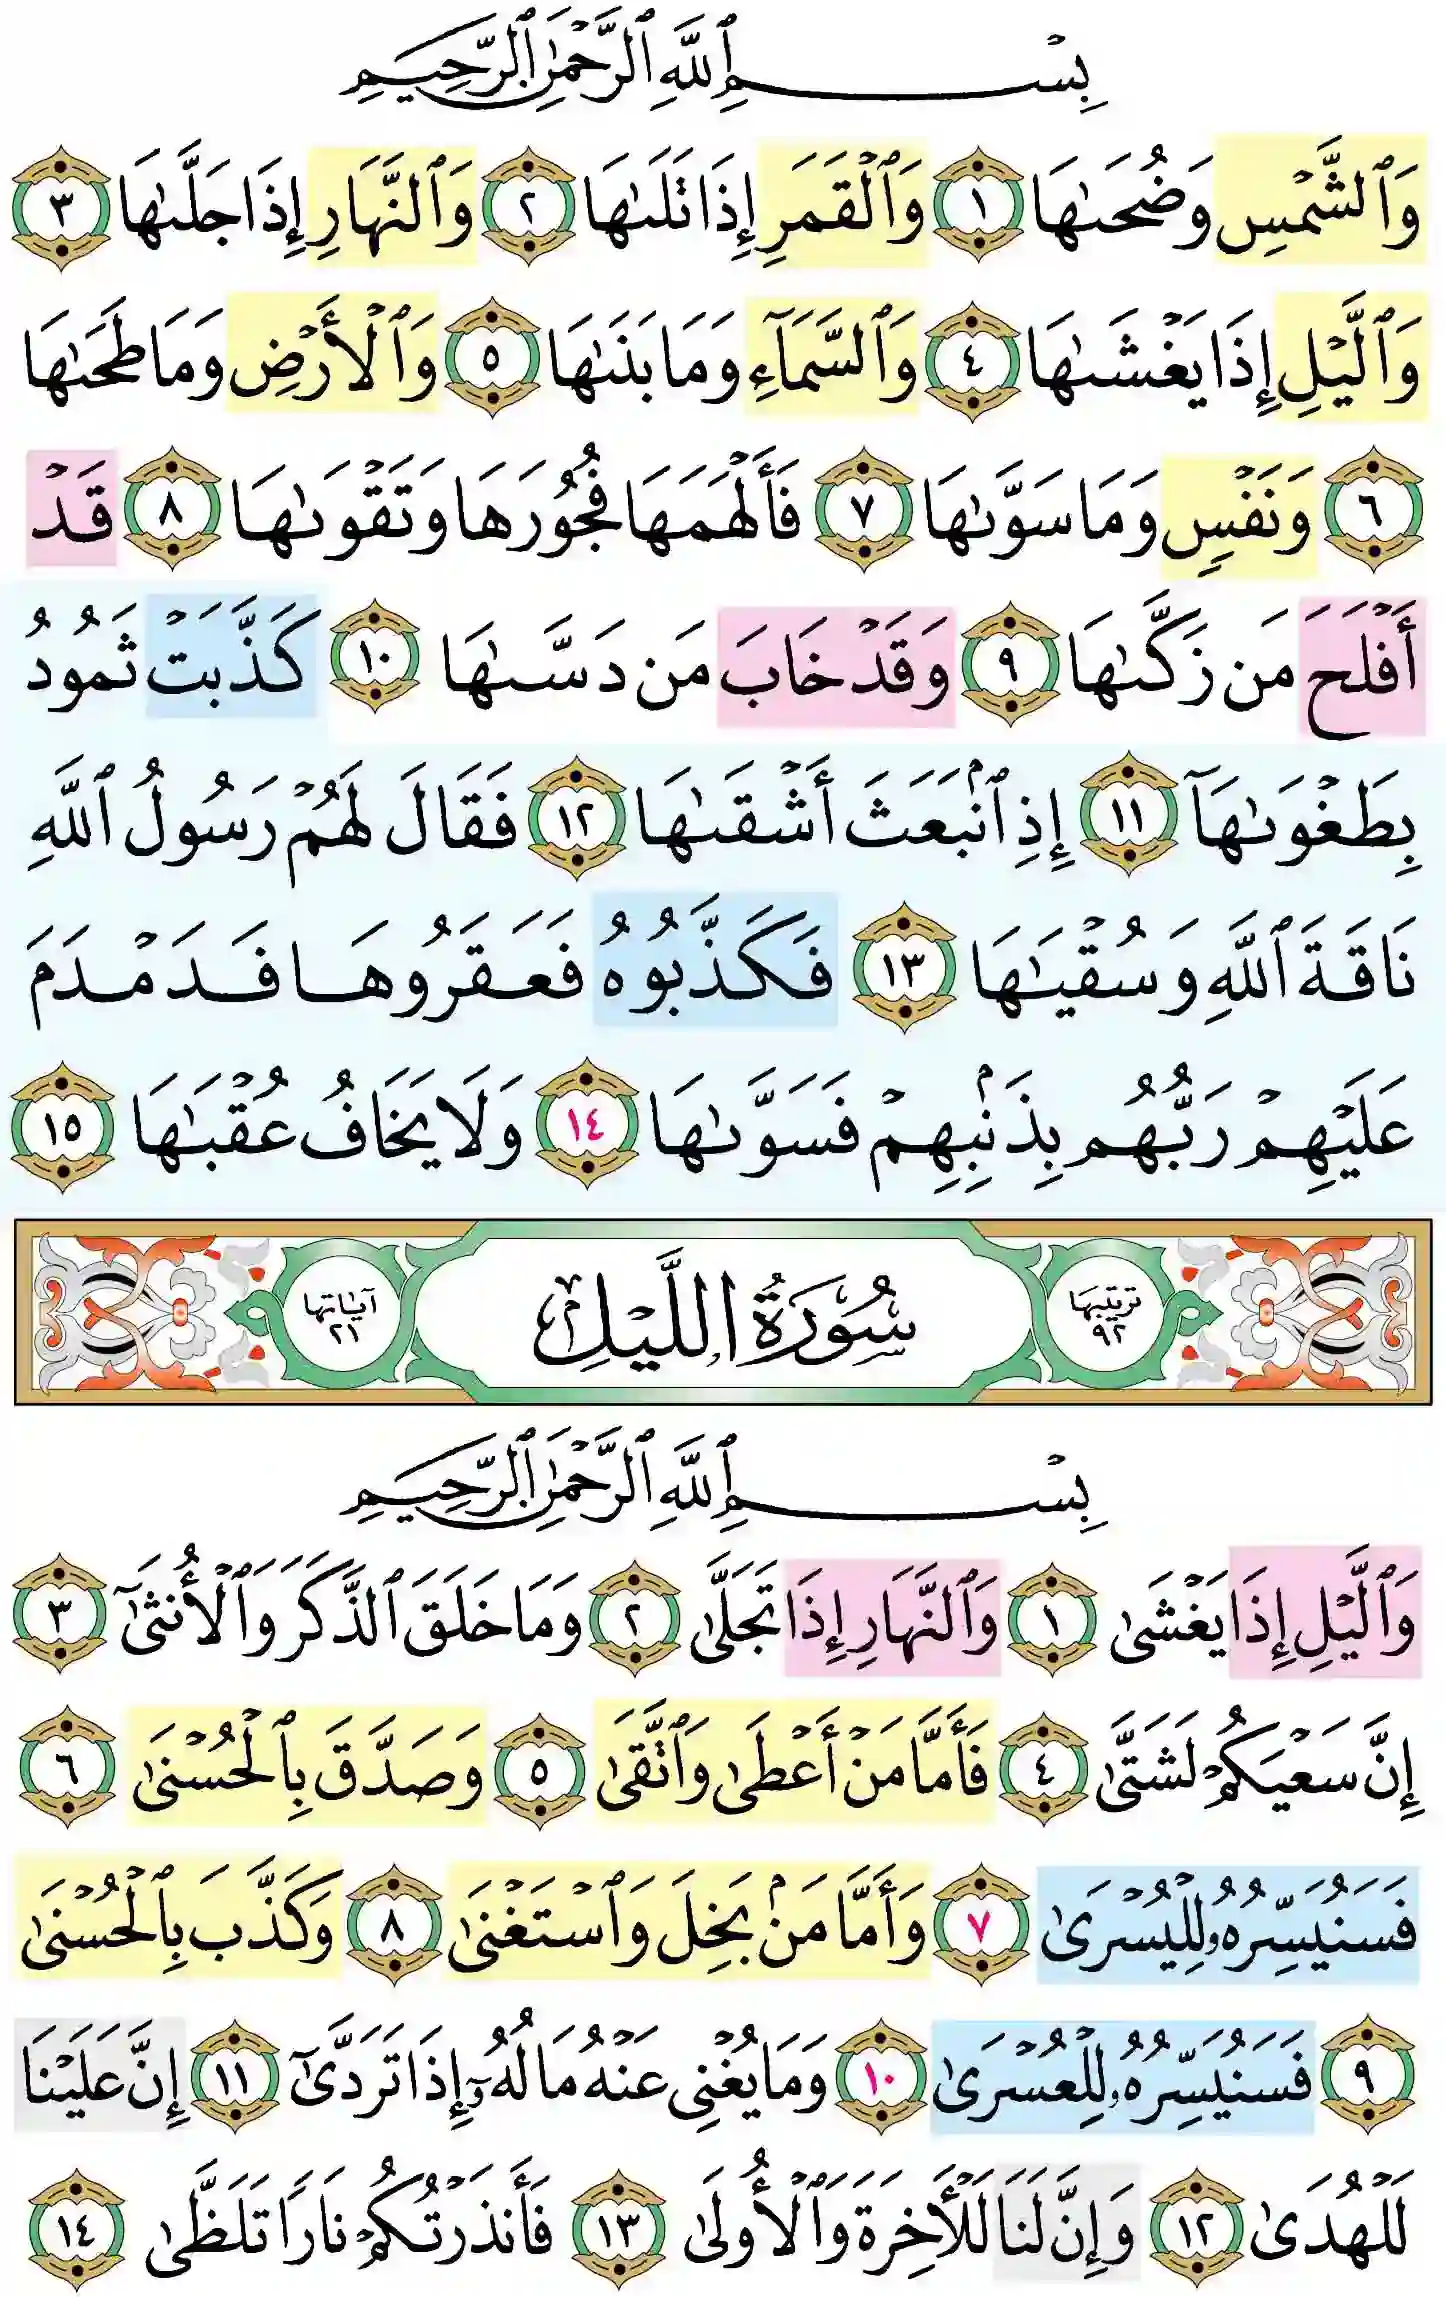 بِسْمِ ٱللَّهِ ٱلرَّحْمَٰنِ ٱلرَّحِيمِ
وَٱلشَّمْسِ وَضُحَىٰهَا ١ وَٱلْقَمَرِ إِذَا تَلَىٰهَا ٢ وَٱلنَّهَارِ إِذَا جَلَّىٰهَا ٣
وَٱلَّيْلِ إِذَا يَغْشَىٰهَا ٤ وَٱلسَّمَآءِ وَمَا بَنَىٰهَا ٥ وَٱلْأَرْضِ وَمَا طَحَىٰهَا
٦ وَنَفْسٍ وَمَا سَوَّىٰهَا ٧ فَأَلْهَمَهَا فُجُورَهَا وَتَقْوَىٰهَا ٨ قَدْ
أَفْلَحَ مَن زَكَّىٰهَا ٩ وَقَدْ خَابَ مَن دَسَّىٰهَا ١٠ كَذَّبَتْ ثَمُودُ
بِطَغْوَىٰهَآ ١١ إِذِ ٱنۢبَعَثَ أَشْقَىٰهَا ١٢ فَقَالَ لَهُمْ رَسُولُ ٱللَّهِ
نَاقَةَ ٱللَّهِ وَسُقْيَٰهَا ١٣ فَكَذَّبُوهُ فَعَقَرُوهَا فَدَمْدَمَ
عَلَيْهِمْ رَبُّهُم بِذَنۢبِهِمْ فَسَوَّىٰهَا ١٤ وَلَا يَخَافُ عُقْبَٰهَا ١٥
ترتيبها ٩٢ سُورَةُ اللَّيْلِ آياتها ٢١
بِسْمِ ٱللَّهِ ٱلرَّحْمَٰنِ ٱلرَّحِيمِ
وَٱلَّيْلِ إِذَا يَغْشَىٰ ١ وَٱلنَّهَارِ إِذَا تَجَلَّىٰ ٢ وَمَا خَلَقَ ٱلذَّكَرَ وَٱلْأُنثَىٰٓ ٣
إِنَّ سَعْيَكُمْ لَشَتَّىٰ ٤ فَأَمَّا مَنْ أَعْطَىٰ وَٱتَّقَىٰ ٥ وَصَدَّقَ بِٱلْحُسْنَىٰ ٦
فَسَنُيَسِّرُهُۥ لِلْيُسْرَىٰ ٧ وَأَمَّا مَنۢ بَخِلَ وَٱسْتَغْنَىٰ ٨ وَكَذَّبَ بِٱلْحُسْنَىٰ
٩ فَسَنُيَسِّرُهُۥ لِلْعُسْرَىٰ ١٠ وَمَا يُغْنِى عَنْهُ مَالُهُۥٓ إِذَا تَرَدَّىٰٓ ١١ إِنَّ عَلَيْنَا
لَلْهُدَىٰ ١٢ وَإِنَّ لَنَا لَلْأَخِرَةَ وَٱلْأُولَىٰ ١٣ فَأَنذَرْتُكُمْ نَارًا تَلَظَّىٰ ١٤